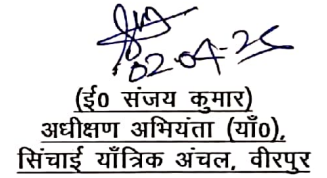 02-04-25
(ई0 संजय कुमार)
अधीक्षण अभियंता (याँ0),
सिंचाई याँत्रिक अंचल, वीरपुर